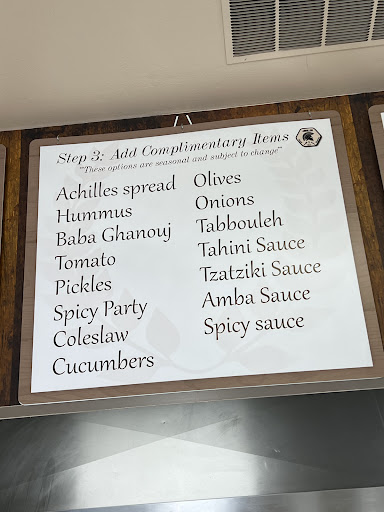 Step 3: Add Complimentary Items
"These options are seasonal and subject to change"
Achilles spread
Hummus
Baba Ghanouj
Tomato
Pickles
Spicy Party
Coleslaw
Cucumbers
Olives
Onions
Tabbouleh
Tahini Sauce
Tzatziki Sauce
Amba Sauce
Spicy sauce